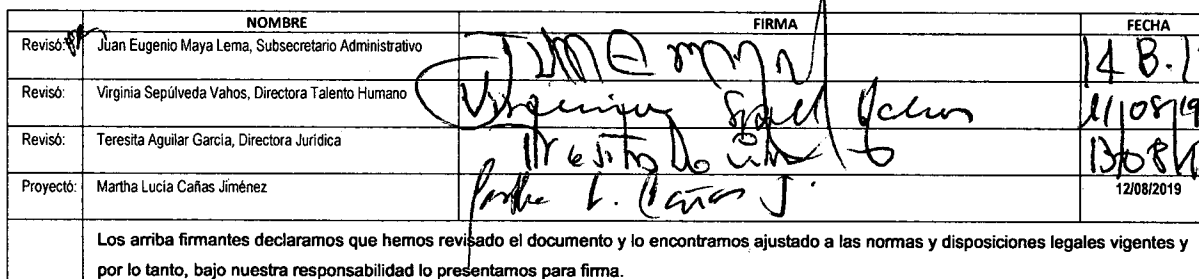 NOMBRE FIRMA FECHA
Revisó: Juan Eugenio Maya Lema, Subsecretario Administrativo
Revisó: Virginia Sepúlveda Vahos, Directora Talento Humano 11/08/19
Revisó: Teresita Aguilar García, Directora Jurídica
Proyectó: Martha Lucía Cañas Jiménez L. Cañas J. 12/08/2019
Los arriba firmantes declaramos que hemos revisado el documento y lo encontramos ajustado a las normas y disposiciones legales vigentes y
por lo tanto, bajo nuestra responsabilidad lo presentamos para firma.